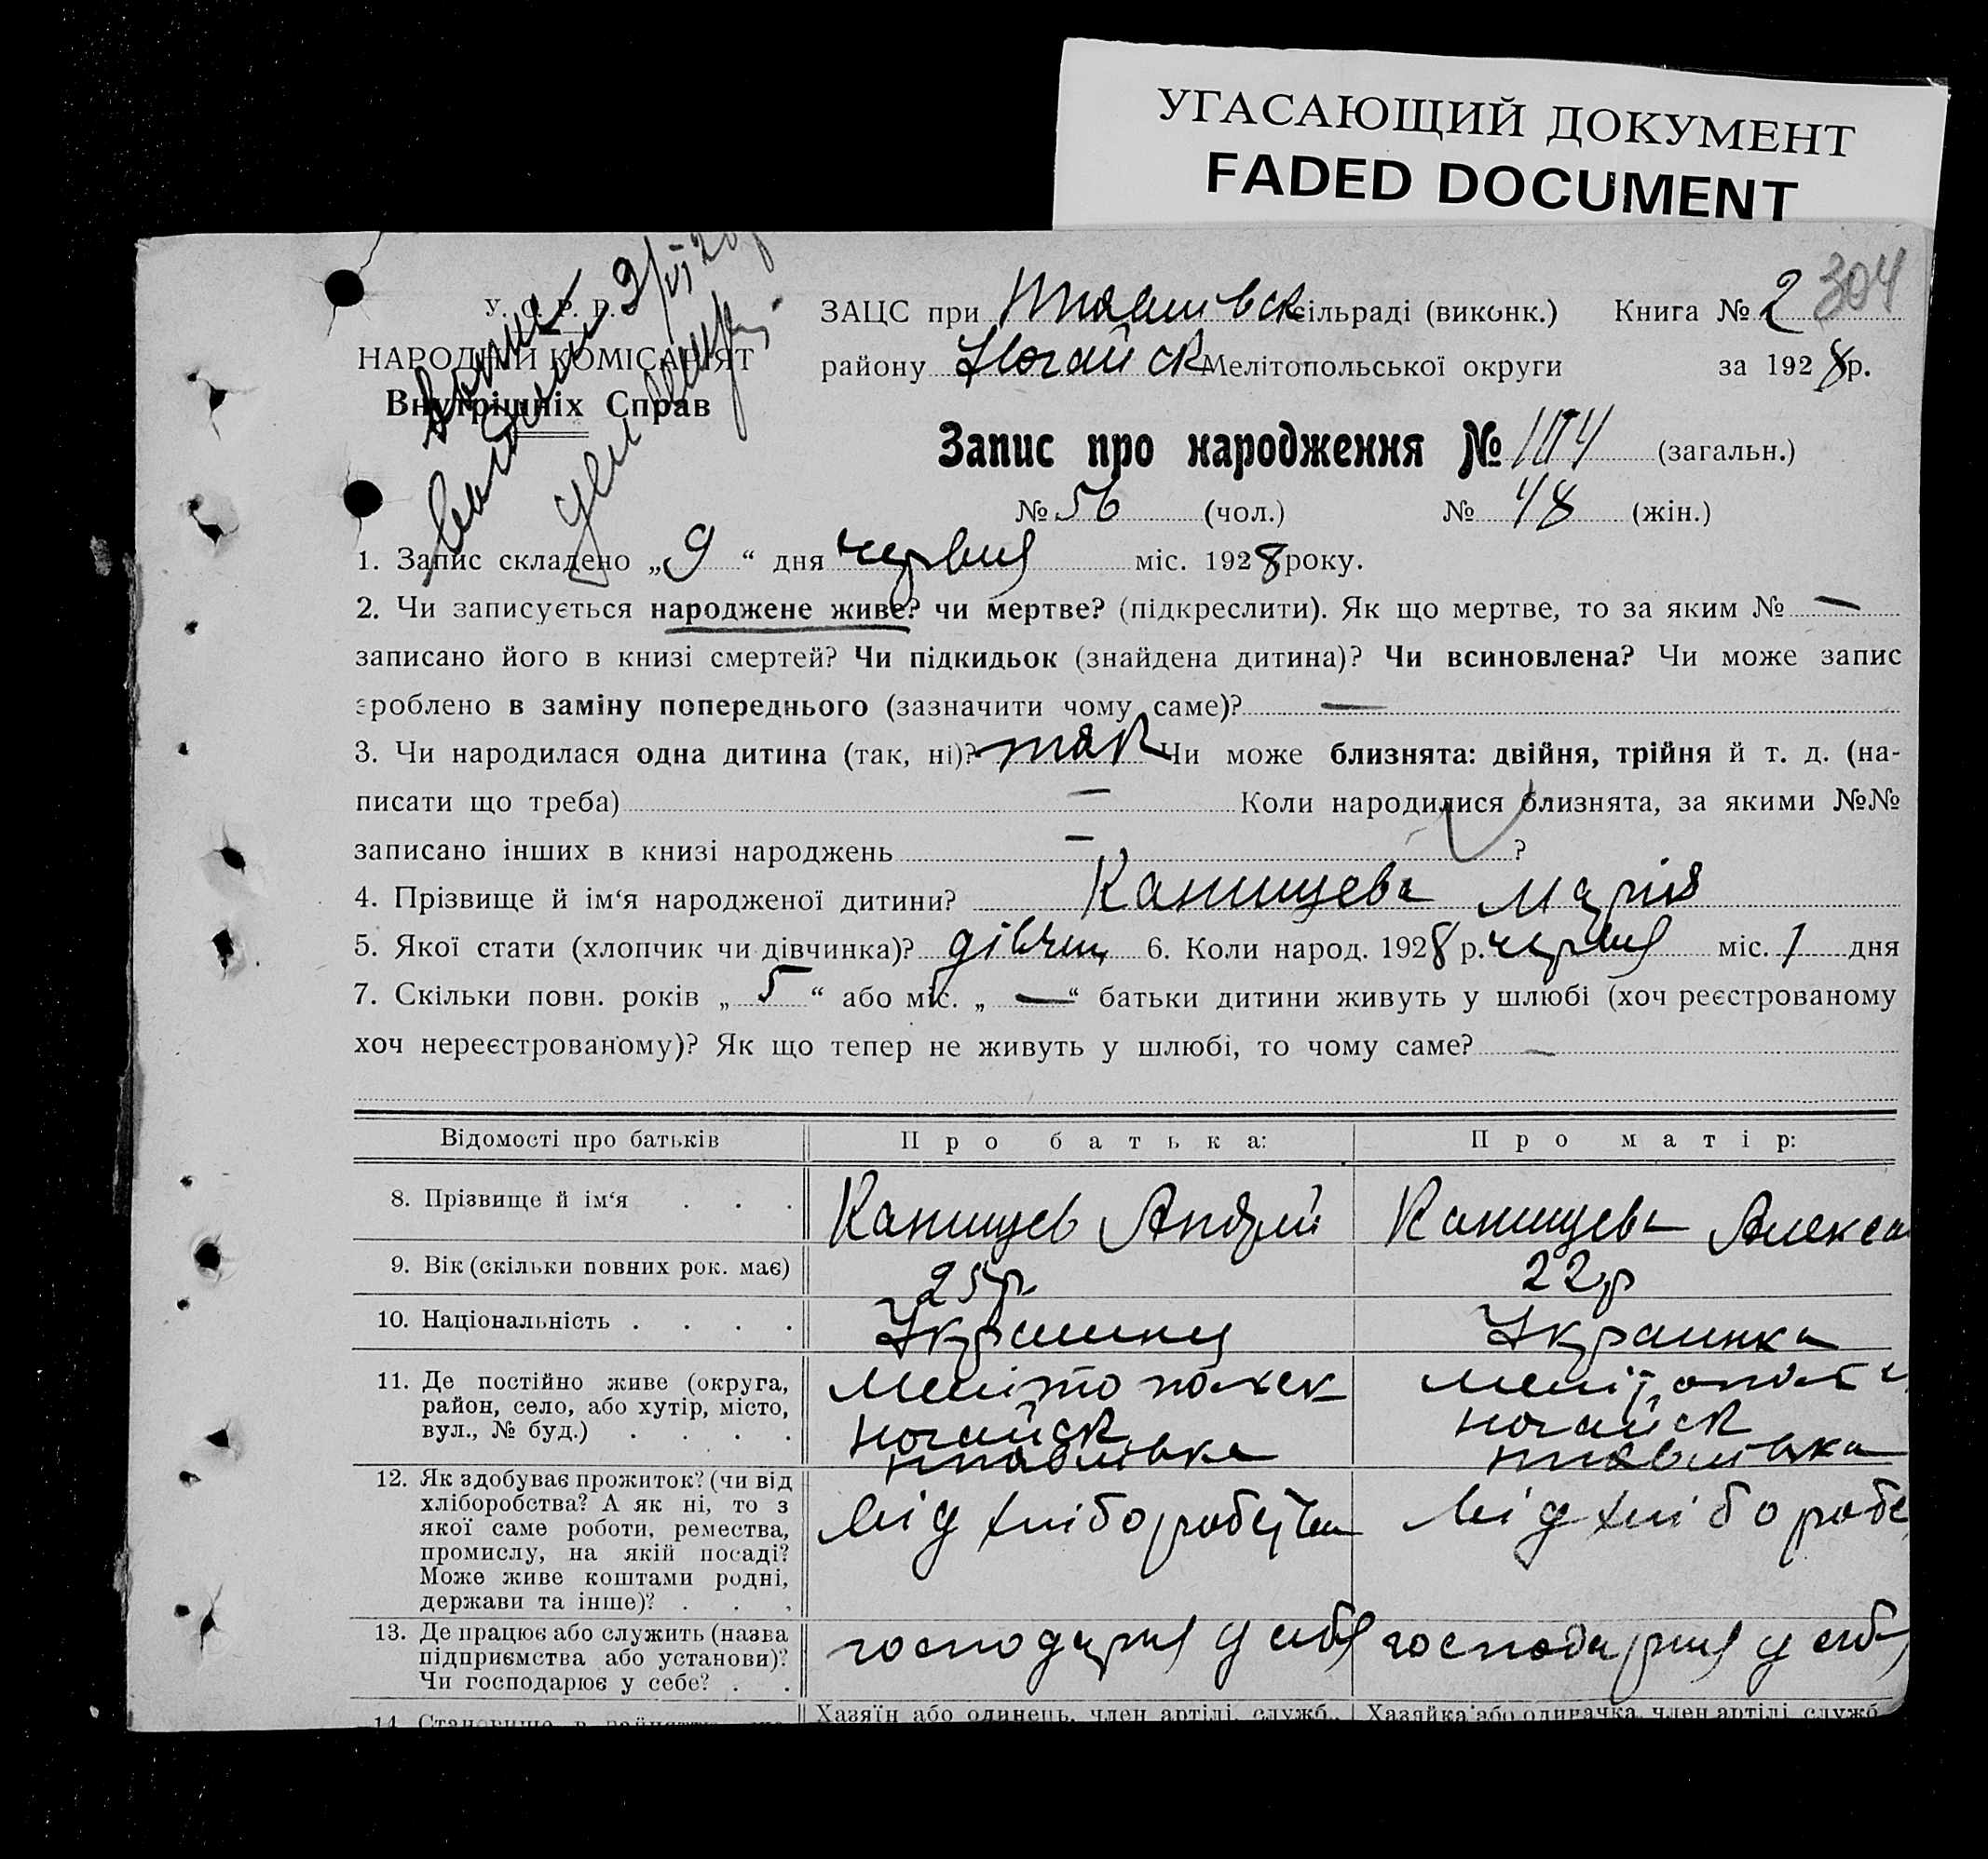 УГАСАЮЩИЙ ДОКУМЕНТ
FADED DOCUMENT
У. С. Р. Р.
НАРОДНІЙ КОМІСАРІЯТ
Внутрішніх Справ
ЗАЦС при сільраді (виконк.) Книга № 2 304
району Ногайск Мелітопольської округи за 1928 р.
Запис про народження № 104 (загальн.)
№ 56 (чол.) № 48 (жін.)
1. Запис складено „9“ дня червня міс. 1928 року.
2. Чи записується народжене живе? чи мертве? (підкреслити). Як що мертве, то за яким № —
записано його в книзі смертей? Чи підкидьок (знайдена дитина)? Чи всиновлена? Чи може запис
зроблено в заміну попереднього (зазначити чому саме)? —
3. Чи народилася одна дитина (так, ні)? так Чи може близнята: двійня, трійня й т. д. (на-
писати що треба) — Коли народилися близнята, за якими №№
записано інших в книзі народжень — ?
4. Прізвище й ім‘я народженої дитини? Канищева Марія
5. Якої стати (хлопчик чи дівчинка)? дівчин 6. Коли народ. 1928 р. червня міс. 1 дня
7. Скільки повн. років „5“ або міс. „—“ батьки дитини живуть у шлюбі (хоч реєстрованому
хоч нереєстрованому)? Як що тепер не живуть у шлюбі, то чому саме? —
Відомості про батьків Про батька: Про матір:
8. Прізвище й ім‘я . . . Канищев Андрій Канищева Алекса
9. Вік (скільки повних рок. має) 25р 22р
10. Національність . . . . Украинец Украинка
11. Де постійно живе (округа,
район, село, або хутір, місто,
вул., № буд.) . . . .
Ногайск Ногайск
12. Як здобуває прожиток? (чи від
хліборобства? А як ні, то з
якої саме роботи, ремества,
промислу, на якій посаді?
Може живе коштами родні,
держави та інше)? . . .
від хліборобства від хліборобс
13. Де працює або служить (назва
підприємства або установи)?
Чи господарює у себе? . .
господарня у себя господарня у себя
Хазяїн або одинець, член артілі, служб., Хазяйка або одиначка, член артілі, служб.